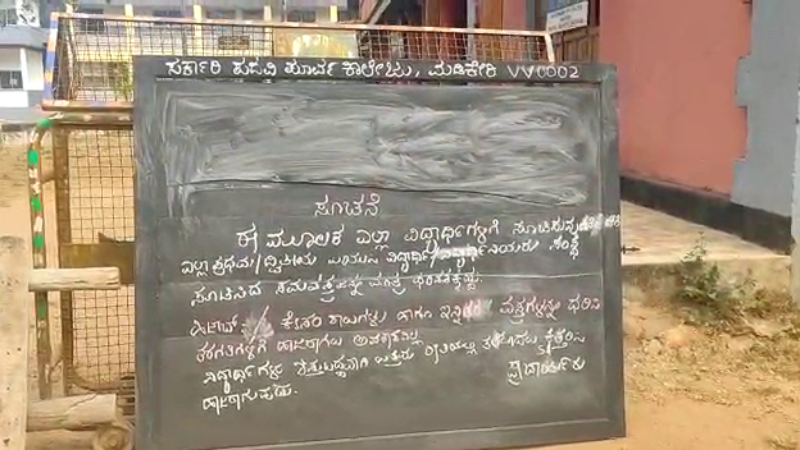 ಸರ್ಕಾರಿ ಪದವಿ ಪೂರ್ವ ಕಾಲೇಜು, ಮಡಿಕೇರಿ VV0002
ಸೂಚನೆ
ಈ ಮೂಲಕ ಎಲ್ಲಾ ವಿದ್ಯಾರ್ಥಿಗಳಿಗೆ
ಎಲ್ಲಾ ಪ್ರಥಮ/ದ್ವಿತೀಯ ಪಿಯುಸಿ ವಿದ್ಯಾರ್ಥಿ/ವಿದ್ಯಾರ್ಥಿನಿಯರು ಸಂಸ್ಥೆ
ಸೂಚಿಸಿದ ಸಮವಸ್ತ್ರವನ್ನು ಮಾತ್ರ ಧರಿಸತಕ್ಕದ್ದು.
ಹಿಜಾಬ್ / ಕೇಸರಿ ಶಾಲುಗಳು ಹಾಗೂ ಇನ್ನಿತರ ವಸ್ತ್ರಗಳನ್ನು ಧರಿಸಿ
ತರಗತಿಗಳಿಗೆ ಹಾಜರಾಗಲು ಅವಕಾಶವಿಲ್ಲ
ವಿದ್ಯಾರ್ಥಿಗಳು ಶಿಸ್ತುಬದ್ಧವಾಗಿ
ಹಾಜರಾಗುವುದು.
ಪ್ರಾಚಾರ್ಯರು